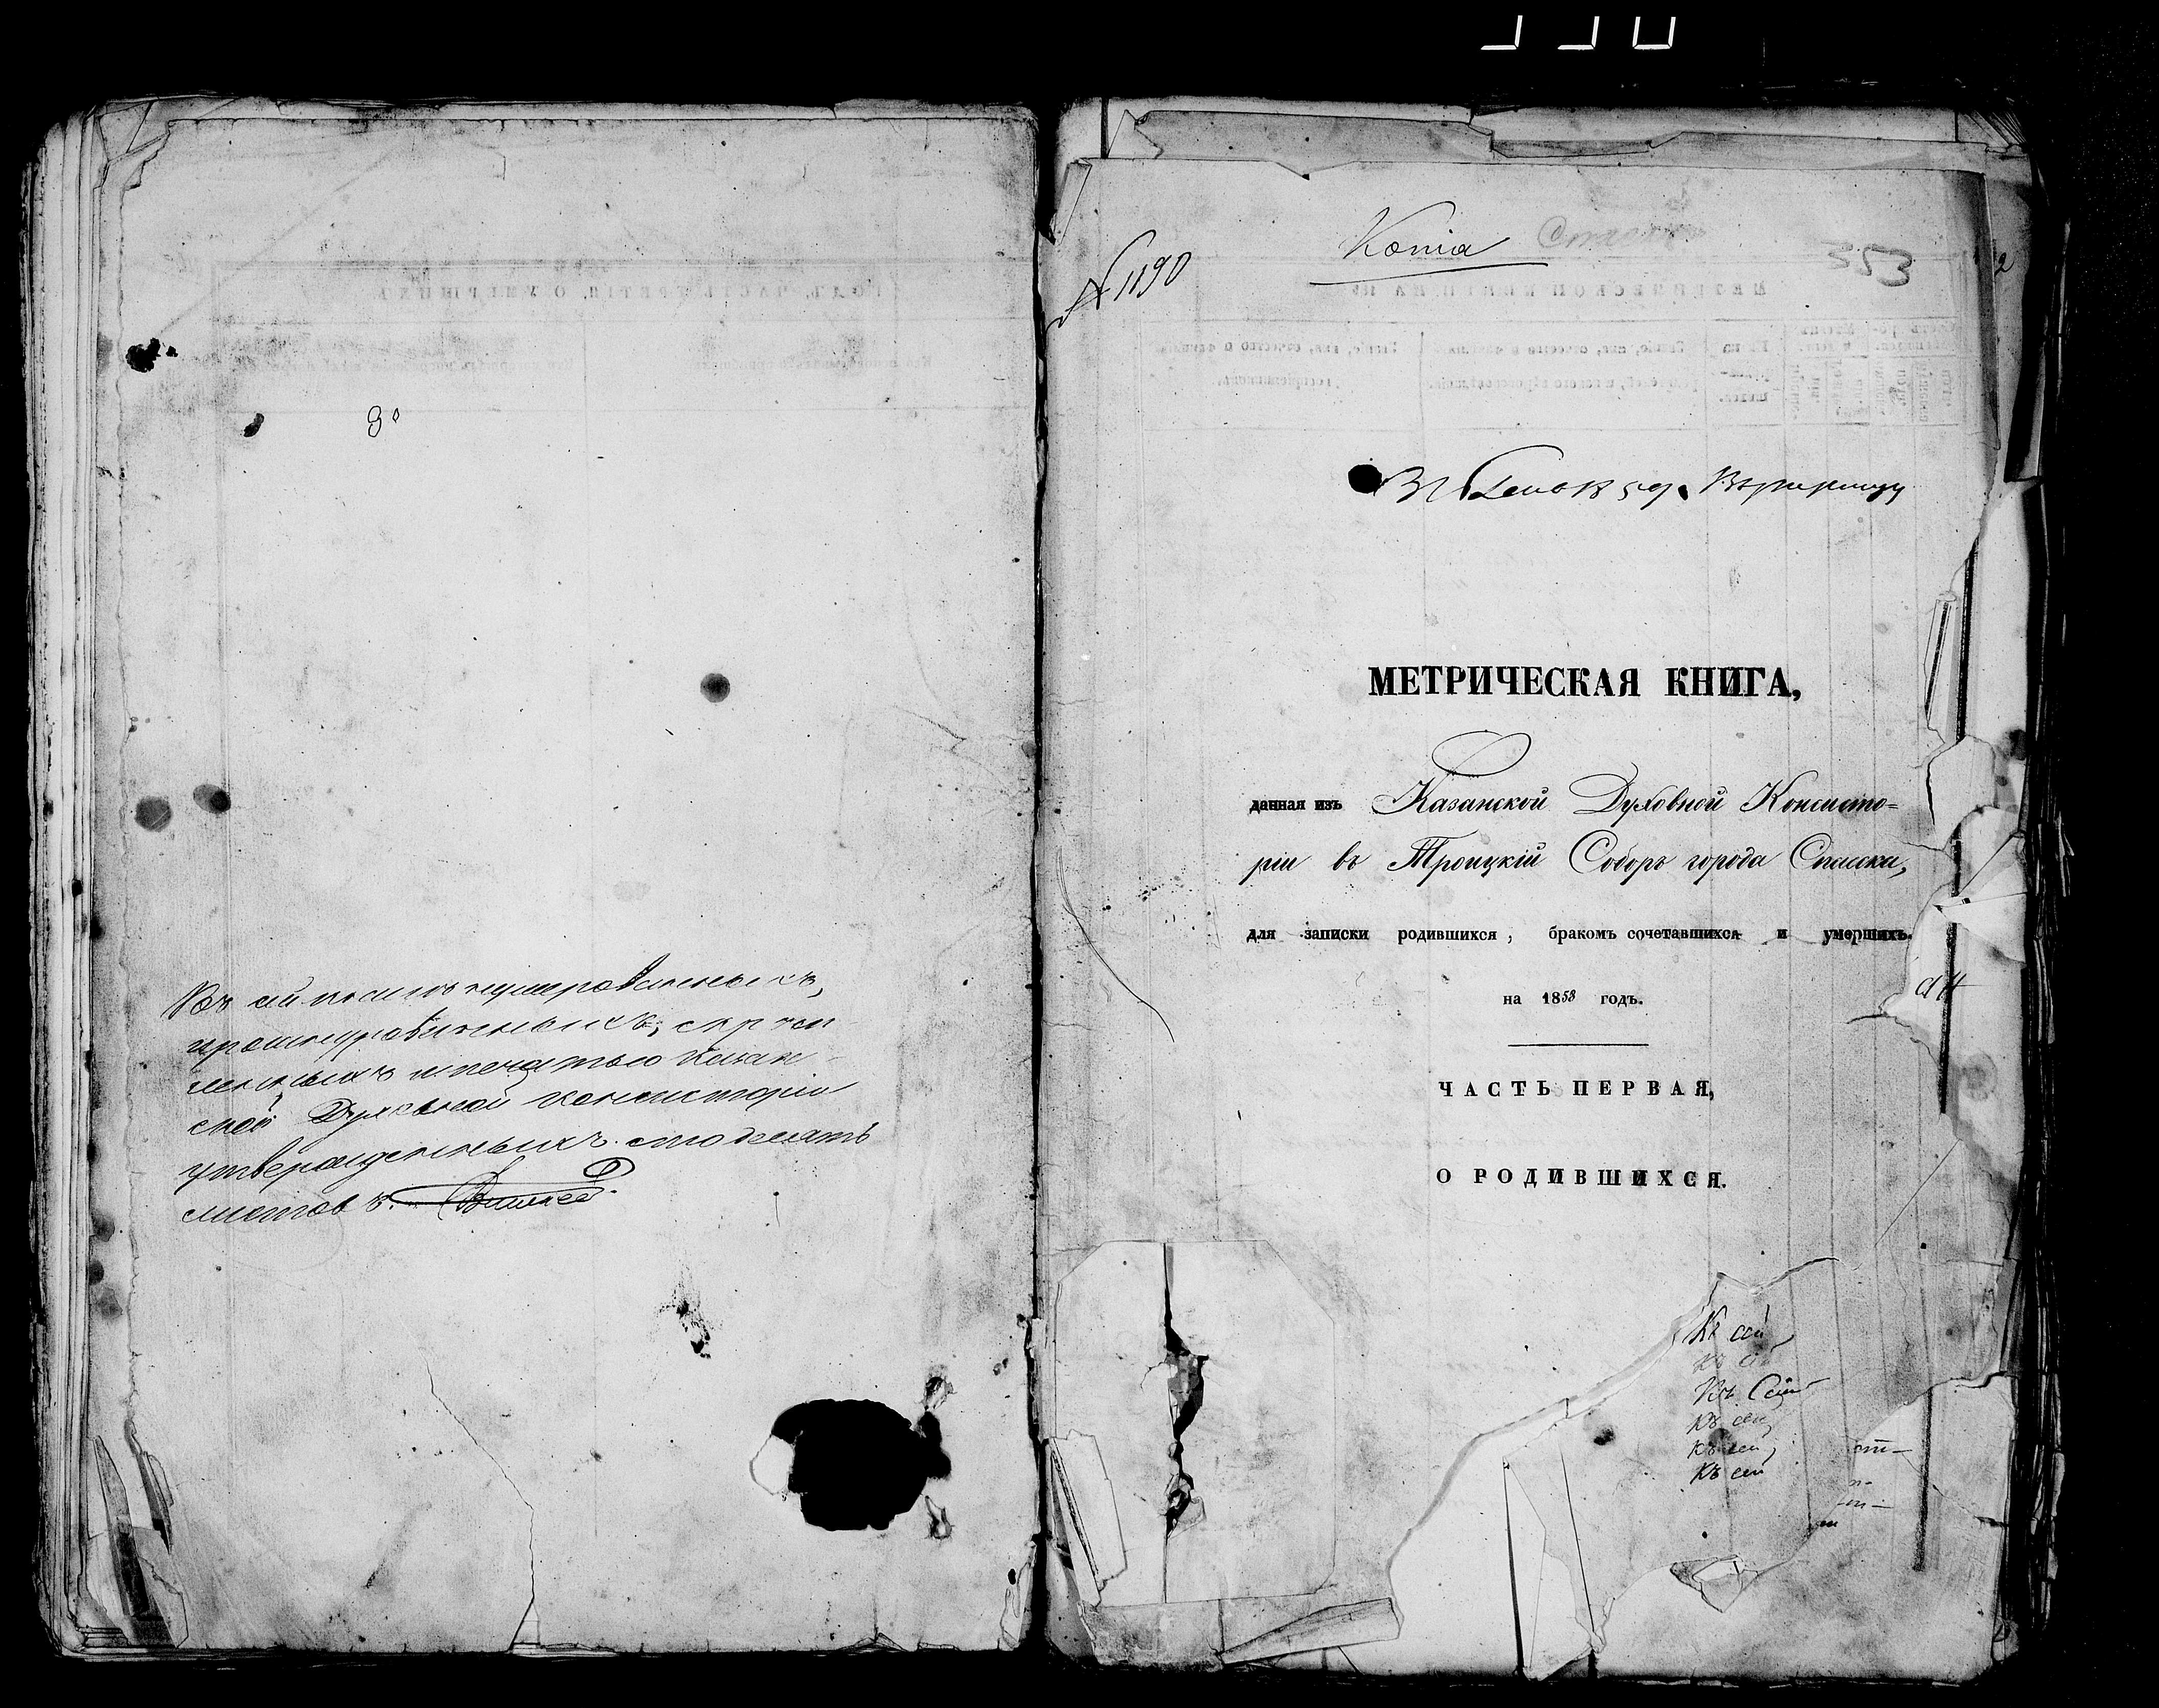 Въ сей книгѣ нумерованныхъ,
прошнурованныхъ, скрѣп
ленныхъ и печатью Казан-
ской Духовной Консисторіи
утвержденныхъ сто десять
листовъ.
№ 1190
Копія
353
2
МЕТРИЧЕСКАЯ КНИГА,
данная изъ Казанской Духовной Консисто=
ріи въ Троицкій Соборъ города Спасска,
для записки родившихся, бракомъ сочетавшихся и умершихъ.
на 1858 годъ.
ЧАСТЬ ПЕРВАЯ,
О РОДИВШИХСЯ.
Къ сей
къ сей
Къ Сей
Къ сей
Къ сей
Къ сей